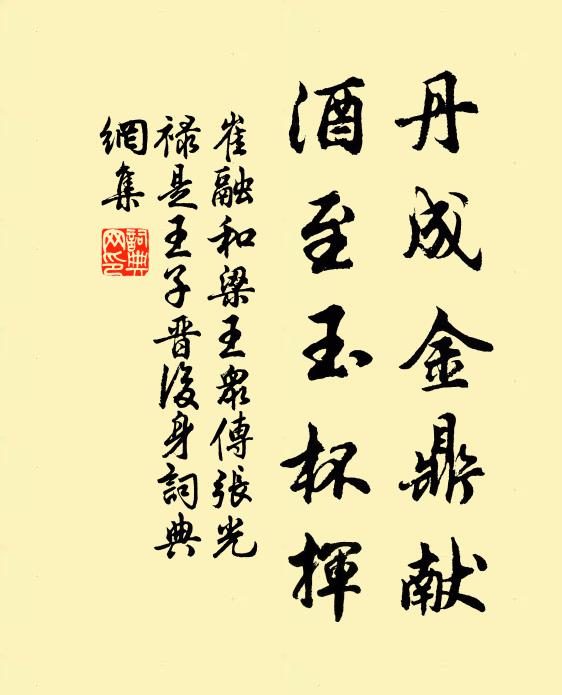 丹成金鼎献
酒至玉杯揮
崔融和梁王眾傳張光
禄是王子晋後身詞典
網集
詞典
网印